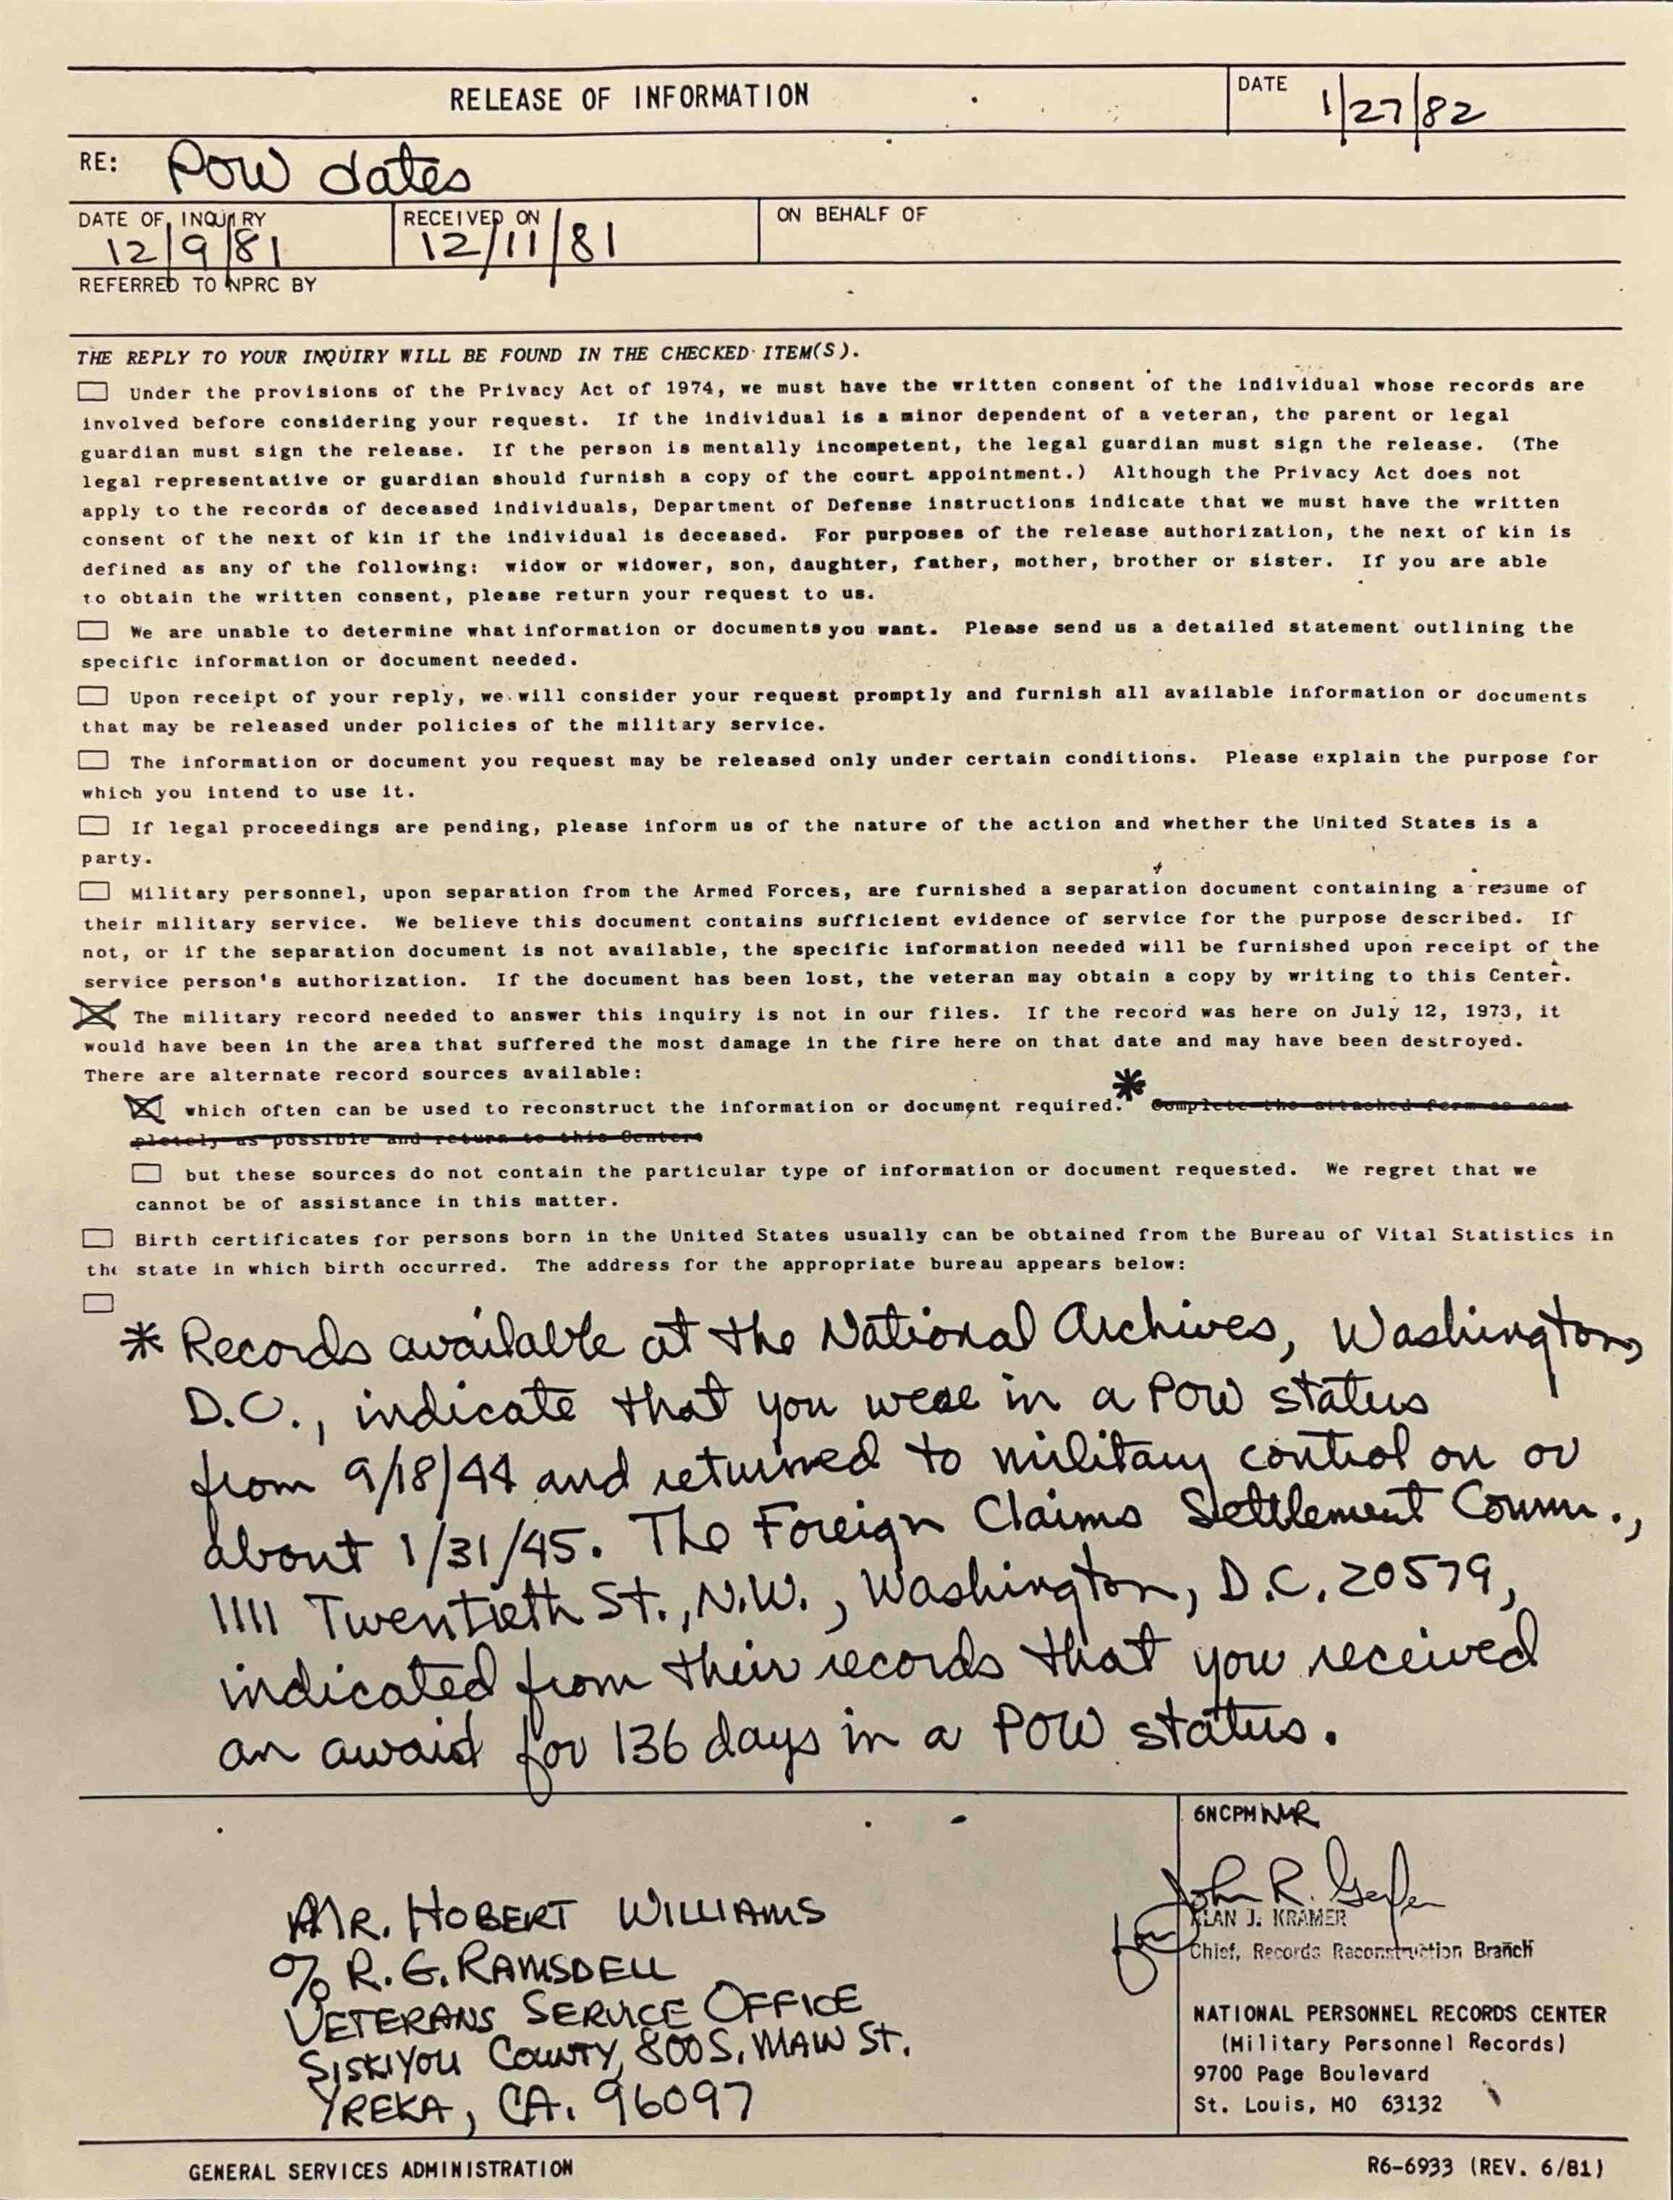 RELEASE OF INFORMATION
DATE 1/27/82
RE: POW dates
DATE OF INQUIRY 12/9/81
RECEIVED ON 12/11/81
ON BEHALF OF
REFERRED TO NPRC BY
THE REPLY TO YOUR INQUIRY WILL BE FOUND IN THE CHECKED ITEM(S).
Under the provisions of the Privacy Act of 1974, we must have the written consent of the individual whose records are
involved before considering your request. If the individual is a minor dependent of a veteran, the parent or legal
guardian must sign the release. If the person is mentally incompetent, the legal guardian must sign the release. (The
legal representative or guardian should furnish a copy of the court appointment.) Although the Privacy Act does not
apply to the records of deceased individuals, Department of Defense instructions indicate that we must have the written
consent of the next of kin if the individual is deceased. For purposes of the release authorization, the next of kin is
defined as any of the following: widow or widower, son, daughter, father, mother, brother or sister. If you are able
to obtain the written consent, please return your request to us.
We are unable to determine what information or documents you want. Please send us a detailed statement outlining the
specific information or document needed.
Upon receipt of your reply, we will consider your request promptly and furnish all available information or documents
that may be released under policies of the military service.
The information or document you request may be released only under certain conditions. Please explain the purpose for
which you intend to use it.
If legal proceedings are pending, please inform us of the nature of the action and whether the United States is a
party.
Military personnel, upon separation from the Armed Forces, are furnished a separation document containing a resume of
their military service. We believe this document contains sufficient evidence of service for the purpose described. If
not, or if the separation document is not available, the specific information needed will be furnished upon receipt of the
service person's authorization. If the document has been lost, the veteran may obtain a copy by writing to this Center.
The military record needed to answer this inquiry is not in our files. If the record was here on July 12, 1973, it
would have been in the area that suffered the most damage in the fire here on that date and may have been destroyed.
There are alternate record sources available:
which often can be used to reconstruct the information or document required.* Complete the attached form as com-
pletely as possible and return to this Center.
but these sources do not contain the particular type of information or document requested. We regret that we
cannot be of assistance in this matter.
Birth certificates for persons born in the United States usually can be obtained from the Bureau of Vital Statistics in
the state in which birth occurred. The address for the appropriate bureau appears below:
* Records available at the National Archives, Washington,
D.C., indicate that you were in a POW status
from 9/18/44 and returned to military control on or
about 1/31/45. The Foreign Claims Settlement Comm.,
1111 Twentieth St., N.W., Washington, D.C. 20579,
indicated from their records that you received
an award for 136 days in a POW status.
6NCPM NMR
John R.
for
ALAN J. KRAMER
Chief, Records Reconstruction Branch
MR. HOBERT WILLIAMS
% R. G. RAMSDELL
VETERANS SERVICE OFFICE
SISKIYOU COUNTY, 800 S. MAIN ST.
YREKA, CA. 96097
NATIONAL PERSONNEL RECORDS CENTER
(Military Personnel Records)
9700 Page Boulevard
St. Louis, MO 63132
GENERAL SERVICES ADMINISTRATION
R6-6933 (REV. 6/81)